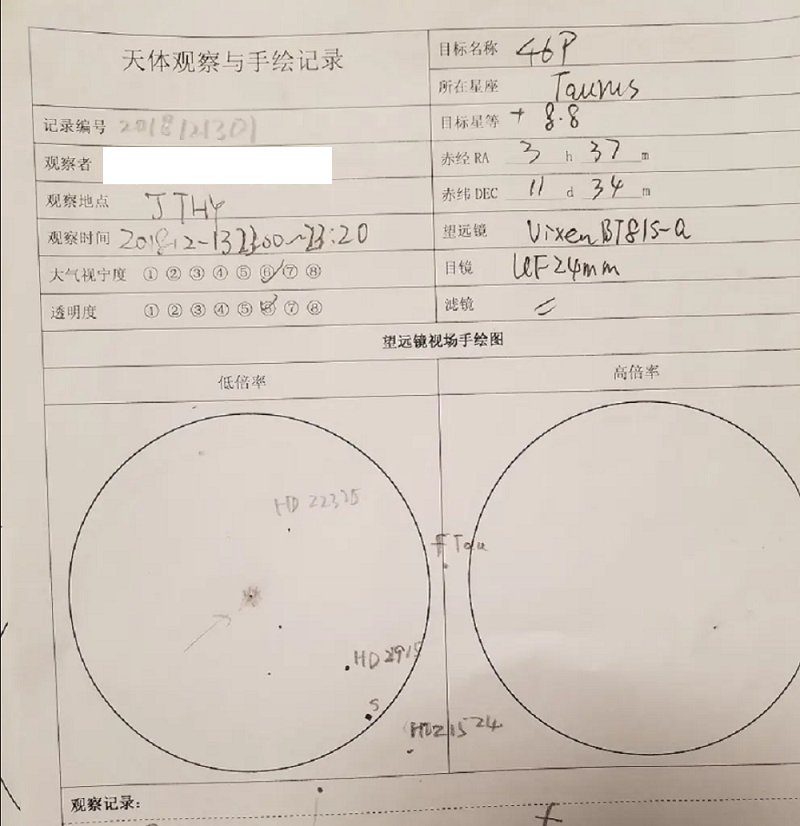 天体观察与手绘记录
记录编号 2018121301
观察者
观察地点 JTHY
观察时间 2018.12-13 23:00~23:20
大气视宁度 ① ② ③ ④ ⑤ ⑥ ⑦ ⑧
透明度 ① ② ③ ④ ⑤ ⑥ ⑦ ⑧
目标名称 46P
所在星座 Taurus
目标星等 + 8.8
赤经 RA 3 h 37 m
赤纬 DEC 11 d 34 m
望远镜 Vixen BT81S-A
目镜 UF24mm
滤镜
望远镜视场手绘图
低倍率
高倍率
HD 22375
f Tau
HD 2915
S
HD21524
观察记录: